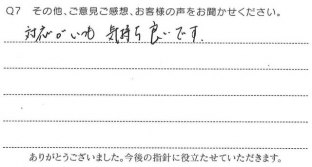 Q7 その他、ご意見ご感想、お客様の声をお聞かせください。
対応がいつも 気持ち良いです.
ありがとうございました。今後の指針に役立たせていただきます。